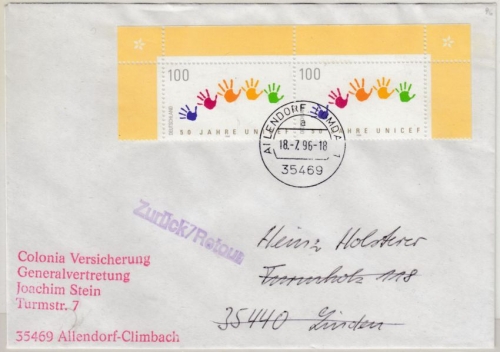 100
100
DEUTSCHLAND
50 JAHRE UNICEF
50 JAHRE UNICEF
ALLENDORF LUMDA 1
a
18.-7.96-18
35469
Zurück/Retour
Colonia Versicherung
Generalvertretung
Joachim Stein
Turmstr. 7
35469 Allendorf-Climbach
Heinz Holsterer
118
35440 Linden